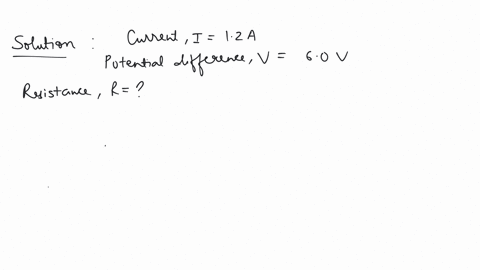 Solution : Current, I = 1.2 A
Potential difference, V = 6.0 V
Resistance, R = ?